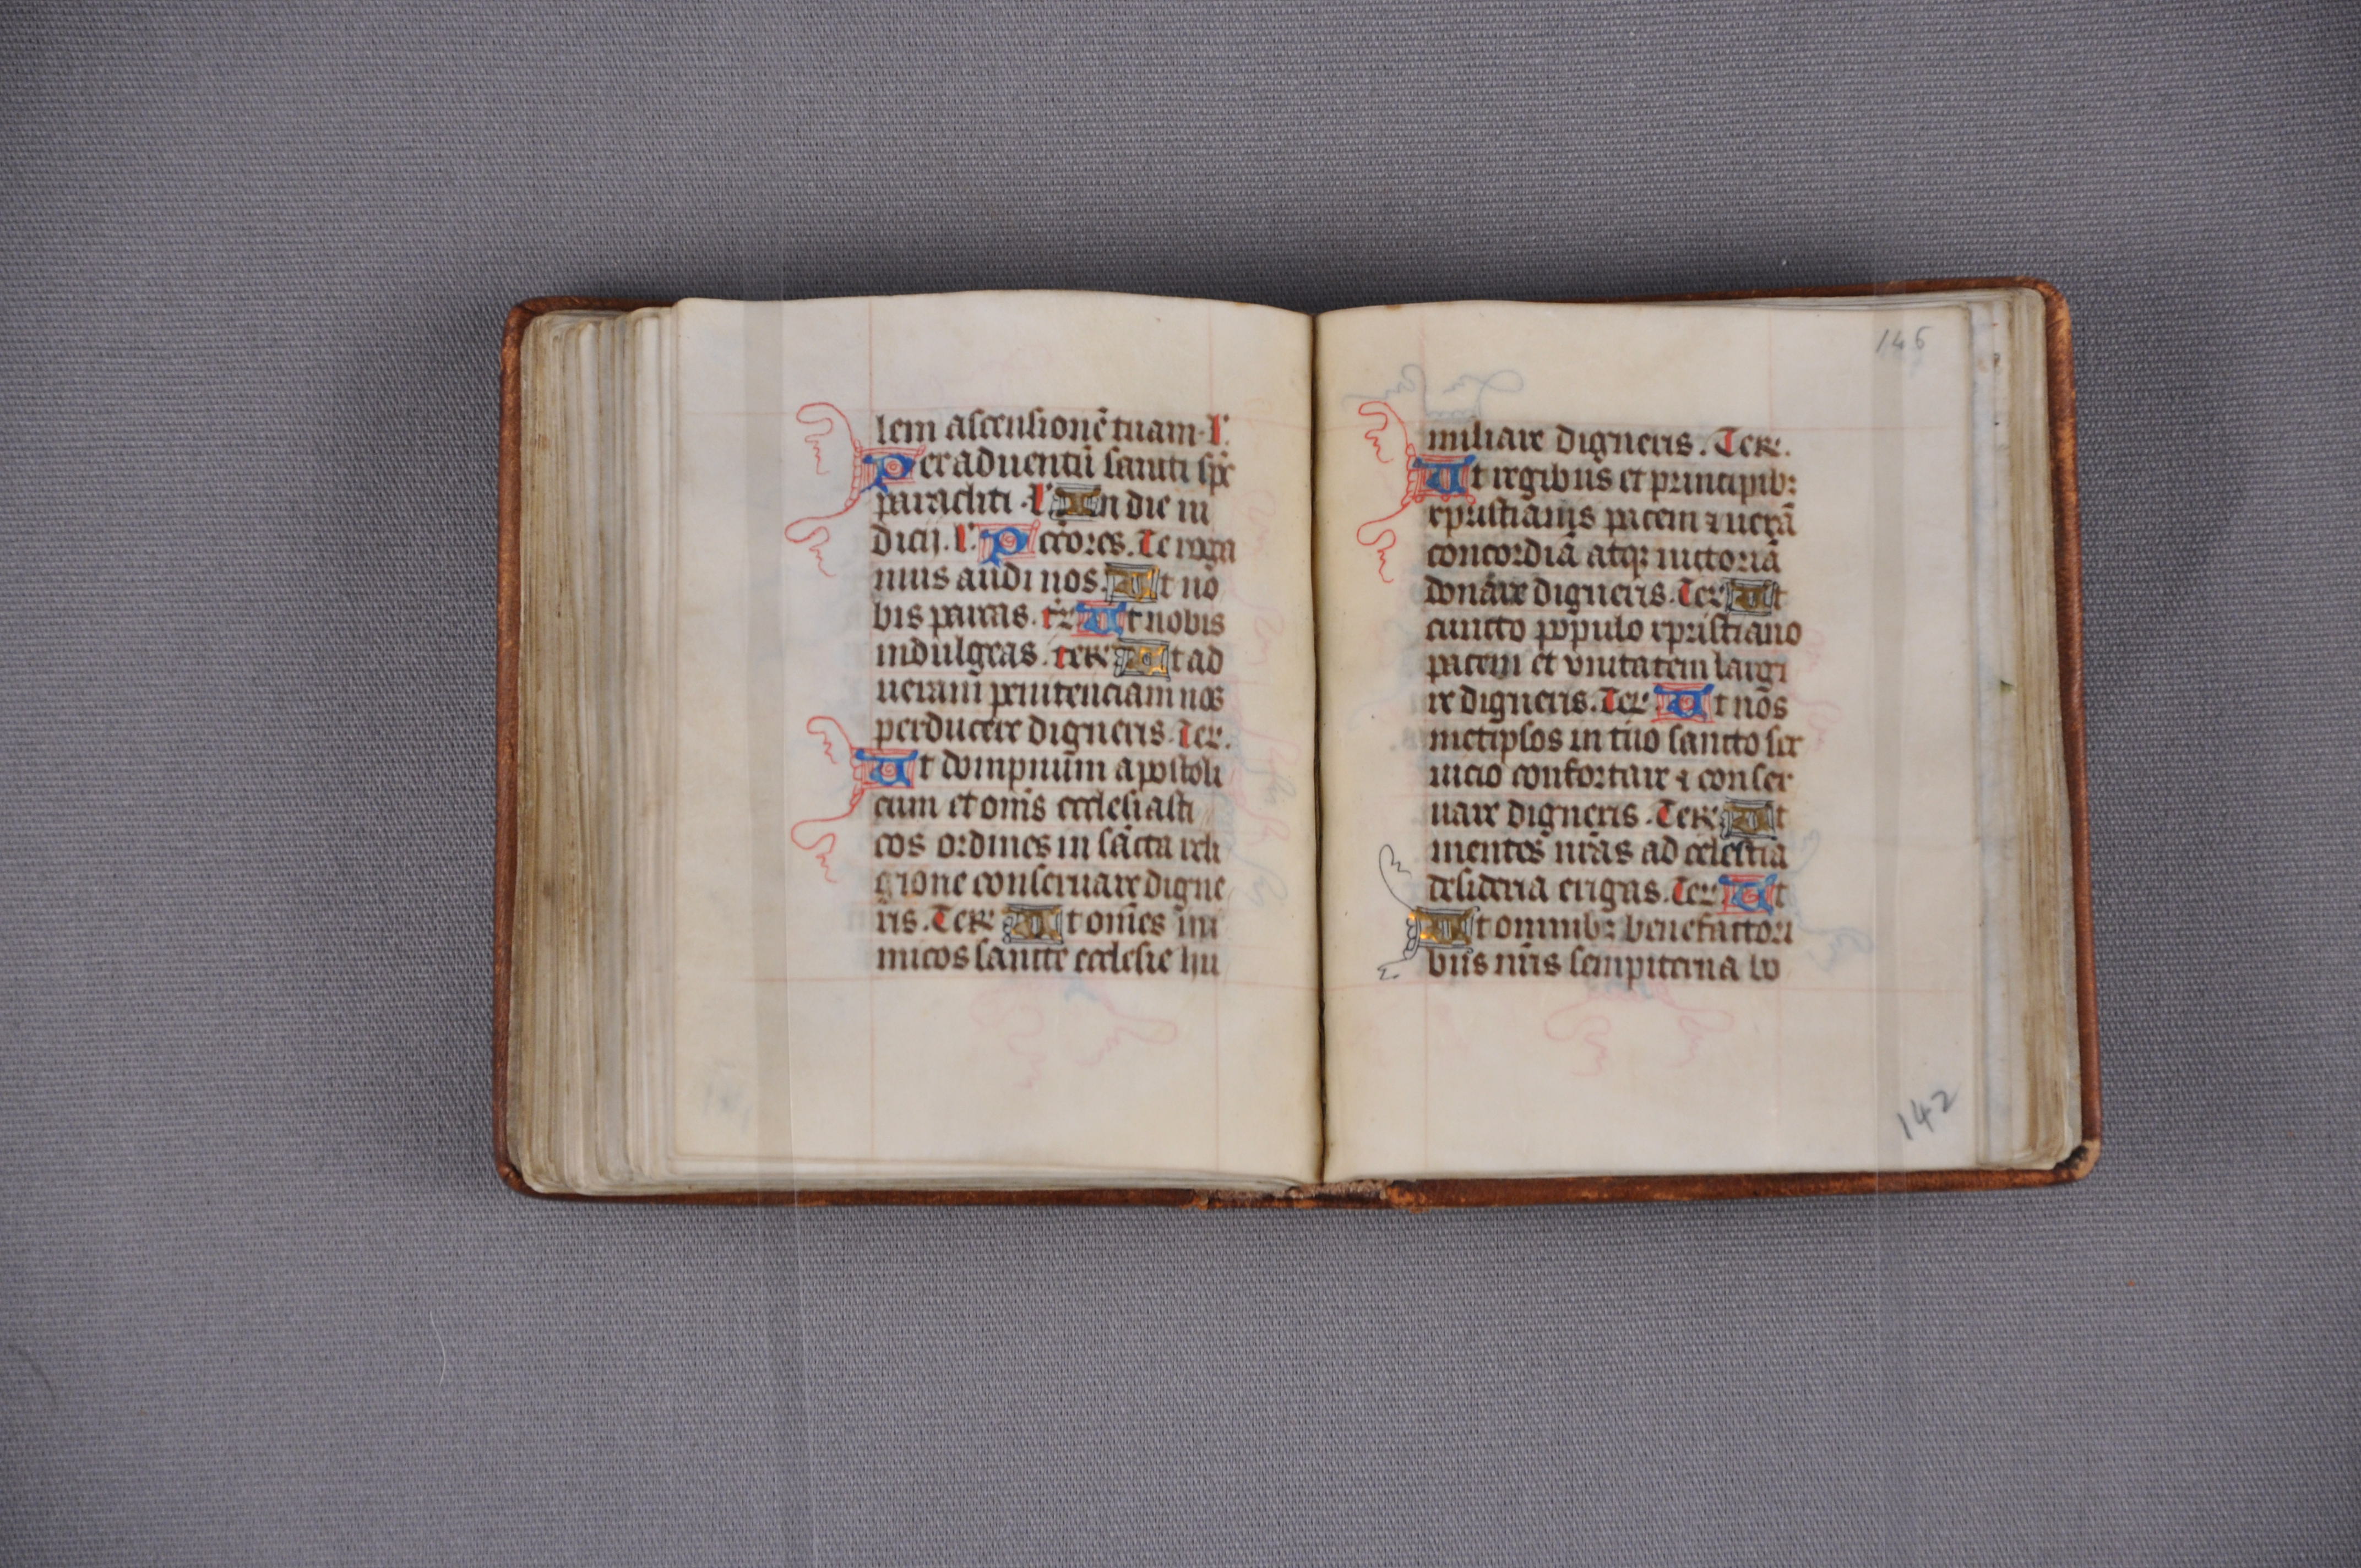 lem ascensionē tuam. l'.
Per aduentū sancti sp̄s
paracliti. l' In die iu
dicij. l'. Pcc̄ores. Te roga
mus audi nos. Ut no
bis parcas. t̄r Ut nobis
indulgeas. ter Ut ad
ueram penitenciam nos
perducere digneris. Ter.
Ut dompnum apostoli
cum et om̄s ecclesiasti
cos ordines in sc̄ta reli
gione conseruare digne
ris. Ter Ut om̄es ini
micos sancte ecclesie hu
145
miliare digneris. Ter.
Ut regibus et principibꝫ
xpristianis pacem ⁊ uerā
concordiā atqꝫ uictoriā
donare digneris. Ter Ut
cuncto populo xpristiano
pacem et vnitatem largi
re digneris. Ter Ut nos
metipsos in tuo sancto ser
uicio confortare ⁊ conser
uare digneris. Ter Ut
mentes nr̄as ad celestia
desideria erigas. Ter Ut
Ut omnibꝫ benefactori
bus nr̄is sempiterna bo
142